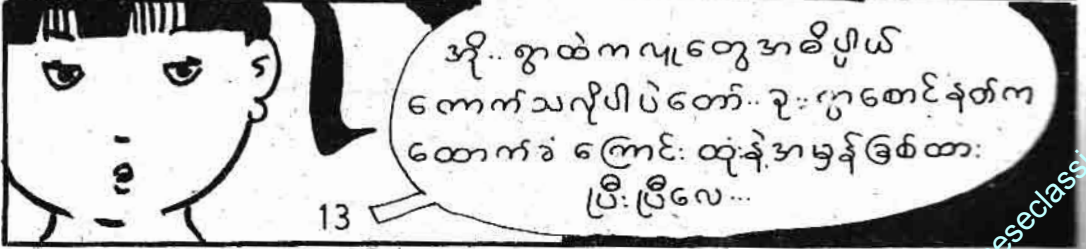 အို.. ရွာထဲကလူတွေအဓိပ္ပါယ်
ကောက်သလိုပါပဲတော်.. ခု ရွာစောင့်နတ်က
ထောက်ခံ ကြောင်း ထုံးနဲ့အမှန်ခြစ်ထား
ပြီးပြီလေ...
13
eseclassi